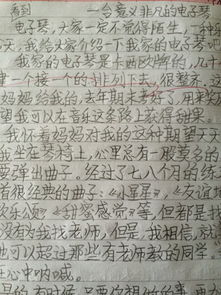 看到 一台意义非凡的电子琴
电子琴,大家一定不觉得陌生,一种乐
天,我给大家介绍一下我家的电子琴
我家的电子琴是卡西欧牌的,几十
键一个接一个的排列下去,很整齐
妈妈给我的,去年期末考好了,用来奖
望我可以在音乐这条路上获得甜果。
我怀着妈妈对我的这种期望天天
我坐在琴椅上,心里总有一股莫名的
要弹出曲子。经过了七八个月的练
首很经典的曲子:《小星星》,《友谊地
欢乐颂》《甜蜜感觉》等,但都是我
没有为我找老师,但是,我相信,就
也可以超过那些有老师教的同学。
心中呐喊。